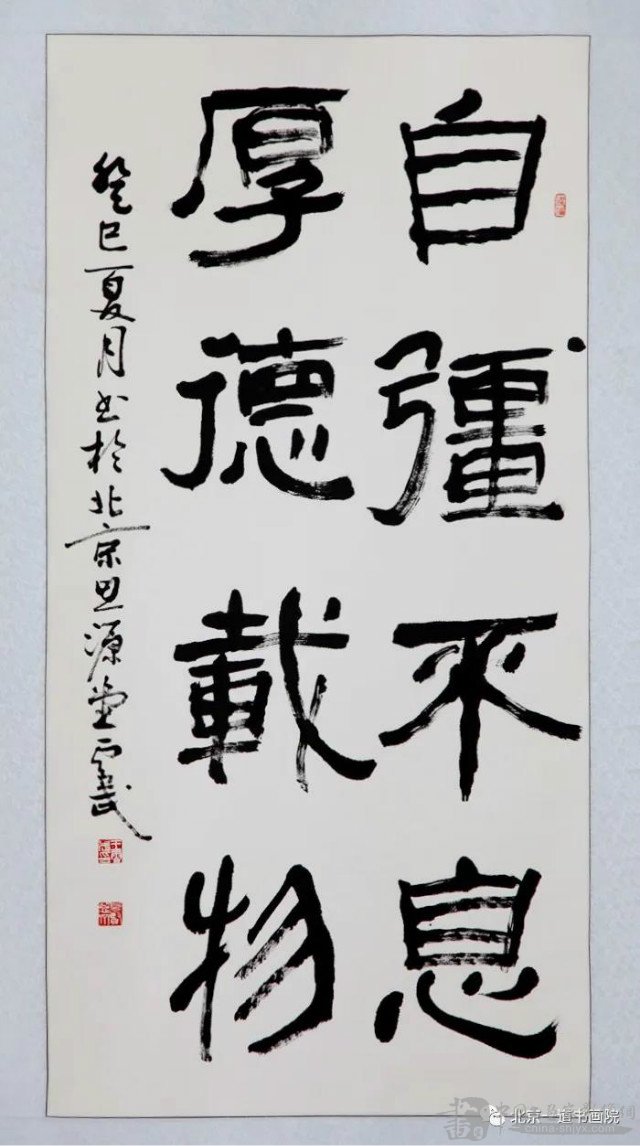 自彊不息
厚德載物
癸巳夏月书於北京思源堂
北京一道书画院
www.china-shjyx.com